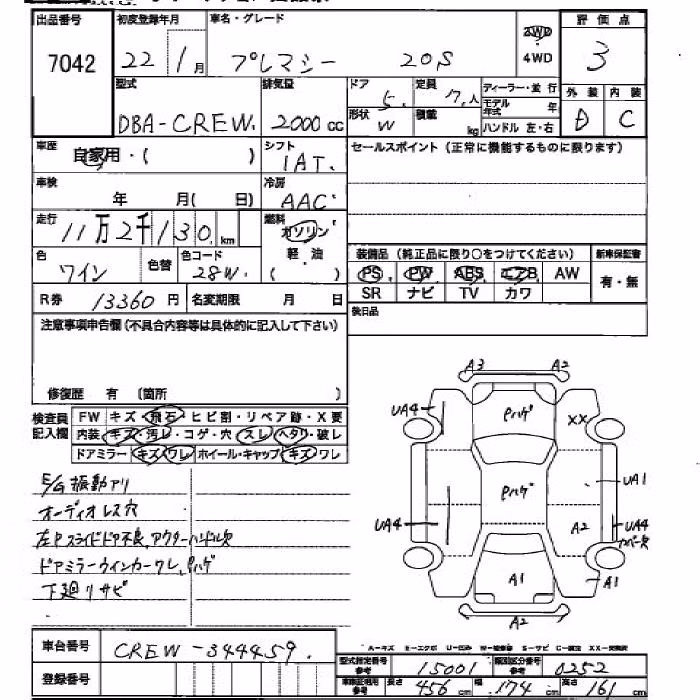 出品番号 初度登録年月 車名・グレード 2WD 4WD 評価点
7042 22 1月 プレマシー 20S 3
型式 排気量 ドア 定員 ディーラー・並行 外装 内装
DBA-CREW. 2000cc 5. 7.人 モデル年式 年 D C
形状 W 積載 kg ハンドル 左・右
車歴 自家用・( ) シフト 1AT. セールスポイント(正常に機能するものに限ります)
車検 年 月( 日) 冷房 AAC
走行 11万2千130km 燃料 ガソリン 軽・油 ( )
色 ワイン 色替 色コード 28W. 装備品(純正品に限り○をつけてください) 新車保証書
PS PW ABS エアB AW 有・無
R券 13360円 名変期限 月 日 SR ナビ TV カワ
注意事項申告欄(不具合内容等は具体的に記入して下さい) 後日品
修復歴 有 〔箇所 〕
検査員記入欄 FW キズ・飛石・ヒビ割・リペア跡・X要
内装・キズ・汚レ・コゲ・穴・スレ・ヘタリ・破レ
ドアミラー・キズ・ワレ・ホイール・キャップ・キズ・ワレ
E/G振動アリ
オーディオレス穴
左Rスライドドア不良,アウターハンドル欠
ドアミラーウインカーワレ,Pハゲ
下廻リサビ
A3 A2
UA4 Pハゲ XX
Pハゲ UA1
UA4 A2 UA4
カバー欠
A1 A1
A2
車台番号 CREW-344459.
登録番号
型式指定番号 参考 15001 類別区分番号 参考 0252
車検証活用 参考 長さ 456cm 幅 174cm 高さ 161cm